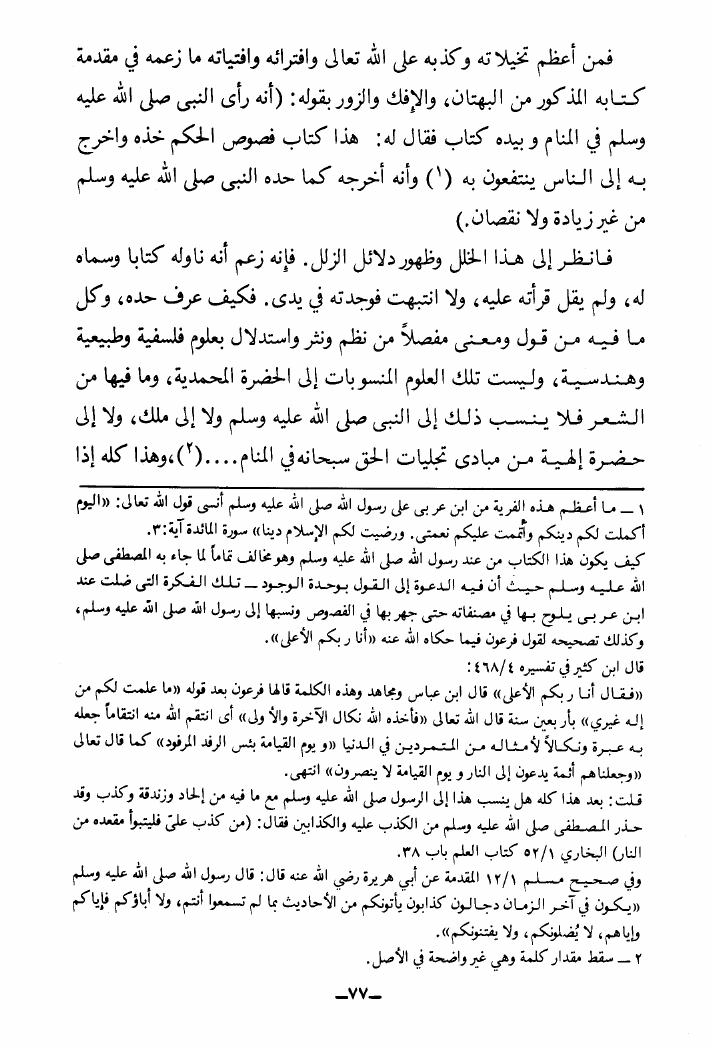 فمن أعظم تخيلاته وكذبه على الله تعالى وافترائه وافتياته ما زعمه في مقدمة
كتابه المذكور من البهتان، والإفك والزور بقوله: (أنه رأى النبى صلى الله عليه
وسلم في المنام و بيده كتاب فقال له: هذا كتاب فصوص الحكم خذه واخرج
به إلى الناس ينتفعون به (١) وأنه أخرجه كما حده النبى صلى الله عليه وسلم
من غير زيادة ولا نقصان.)
فانظر إلى هذا الخلل وظهور دلائل الزلل. فإنه زعم أنه ناوله كتابا وسماه
له، ولم يقل قرأته عليه، ولا انتبهت فوجدته في يدى. فكيف عرف حده، وكل
ما فيه من قول ومعنى مفصلاً من نظم ونثر واستدلال بعلوم فلسفية وطبيعية
وهندسية، وليست تلك العلوم المنسوبات إلى الحضرة المحمدية، وما فيها من
الشعر فلا ينسب ذلك إلى النبى صلى الله عليه وسلم ولا إلى ملك، ولا إلى
حضرة إلهية من مبادى تجليات الحق سبحانه في المنام....(٢)، وهذا كله إذا
١ ــ ما أعظم هذه الفرية من ابن عربى على رسول الله صلى الله عليه وسلم أنسى قول الله تعالى: «اليوم
أكملت لكم دينكم وأتممت عليكم نعمتى. ورضيت لكم الإسلام دينا» سورة المائدة آية:٣.
كيف يكون هذا الكتاب من عند رسول الله صلى الله عليه وسلم وهو مخالف تماماً لما جاء به المصطفى صلى
الله عليه وسلم حيث أن فيه الدعوة إلى القول بوحدة الوجود ــ تلك الفكرة التى ضلت عند
ابن عربى يلوح بها في مصنفاته حتى جهر بها في الفصوص ونسبها إلى رسول الله صلى الله عليه وسلم،
وكذلك تصحيحه لقول فرعون فيما حكاه الله عنه «أنا ربكم الأعلى».
قال ابن كثير في تفسيره ٤٦٨/٤:
«فقال أنا ربكم الأعلى» قال ابن عباس ومجاهد وهذه الكلمة قالها فرعون بعد قوله «ما علمت لكم من
إله غيري» بأربعين سنة قال الله تعالى «فأخذه الله نكال الآخرة والأولى» أى انتقم الله منه انتقاماً جعله
به عبرة ونكالاً لأمثاله من المتمردين في الدنيا «و يوم القيامة بئس الرفد المرفود» كما قال تعالى
«وجعلناهم أئمة يدعون إلى النار و يوم القيامة لا ينصرون» انتهى.
قلت: بعد هذا كله هل ينسب هذا إلى الرسول صلى الله عليه وسلم مع ما فيه من إلحاد وزندقة وكذب وقد
حذر المصطفى صلى الله عليه وسلم من الكذب عليه والكذابين فقال: (من كذب علىّ فليتبوأ مقعده من
النار) البخاري ٥٢/١ كتاب العلم باب ٣٨.
وفي صحيح مسلم ١٢/١ المقدمة عن أبي هريرة رضي الله عنه قال: قال رسول الله صلى الله عليه وسلم
«يكون في آخر الزمان دجالون كذابون يأتونكم من الأحاديث بما لم تسمعوا أنتم، ولا أباؤكم فإياكم
وإياهم، لا يُضلونكم، ولا يفتنونكم».
٢ ــ سقط مقدار كلمة وهي غير واضحة في الأصل.
ــ٧٧ــ